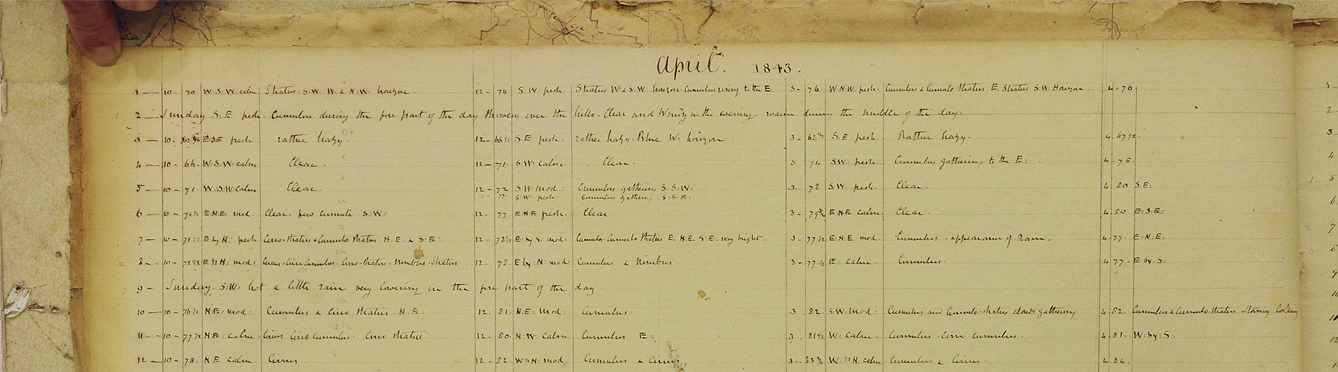 April. 1843.
1 — 10 - 70 W.S.W. calm Stratus. S.W. W & N.W. horizon. 12 - 74 S.W. fresh Stratus W & S.W. horizon cumulus rising to the E 3 - 76 W.N.W. fresh Cumulus & Cumulo Stratus E. Stratus S.W. Horizon 4 - 76
2 — Sunday S.E. fresh. Cumulus during the fore part of the day over the hills. Clear and Windy in the evening. warm during the middle of the day.
3 — 10 - E.S.E fresh rather hazy. 12 - 66½ S.E fresh rather hazy. Blue W. horizon 3 - 68½ S.E fresh Rather hazy. 4 - 67½
4 — 10 - 66 W.S.W. calm Clear. 12 - 71 S.W. calm Clear. 3 74 S.W. fresh Cumulus gathering to the E: 4 - 75
5 — 10 - 71 W.S.W calm Clear. 12 - 72 S.W. mod: Cumulus gathering S.S.W. 3 - 78 S.W. fresh Clear. 4 - 80 S.E.
S.W. fresh Cumulus gathering S.S.E.
6 — 10 - 74½ E.N.E mod. Clear. few cumuli S.W. 12 - 77 E.N.E fresh Clear 3 - 79¾ E.N.E calm Clear. 4 - 80 E.S.E.
7 — 10 - 71½ E by N. fresh Cirro-stratus & Cumulo stratus N.E. & S.E. 12 - 73½ E by S. mod: Cumulo stratus E. N.E. S.E. very bright. 3 - 77½ E.N.E mod. Cumulus - appearance of rain. 4 - 77 - E.N.E.
8 — 10 - 72½ E by N. mod: Cirrus - Cirro Cumulus. Cirro-Stratus. Nimbus. Stratus 12 - 75. E by N. mod Cumulus & Nimbus 3 - 77½ E calm Cumulus. 4 - 77. E by S.
9 — Sunday. S.W. hot a little rain very lowering in the fore part of the day
10 — 10 - 76½ N.E. mod: Cumulus & Cirro Stratus. N.E. 12 - 81. N.E. mod Cumulus 3 - 82. S.W. mod: Cumulus and Cumulo-Stratus clouds gathering 4 - 82. Cumulus & Cumulo Stratus. Stormy looking
11 — 10 - 77½ N.E. calm Cirrus Cirro Cumulus. Cirro Stratus 12 - 80 N.W. calm Cumulus E: 3 - 81½ W. calm Cumulus. Cirro cumulus. 4 - 81. W. by S:
12 — 10 - 78. N.E calm. Cirrus. 12 - 82. W by N. mod. Cumulus & Cirrus 3 - 83¾ W. by N. calm Cumulus & Cirrus. 4 - 84.